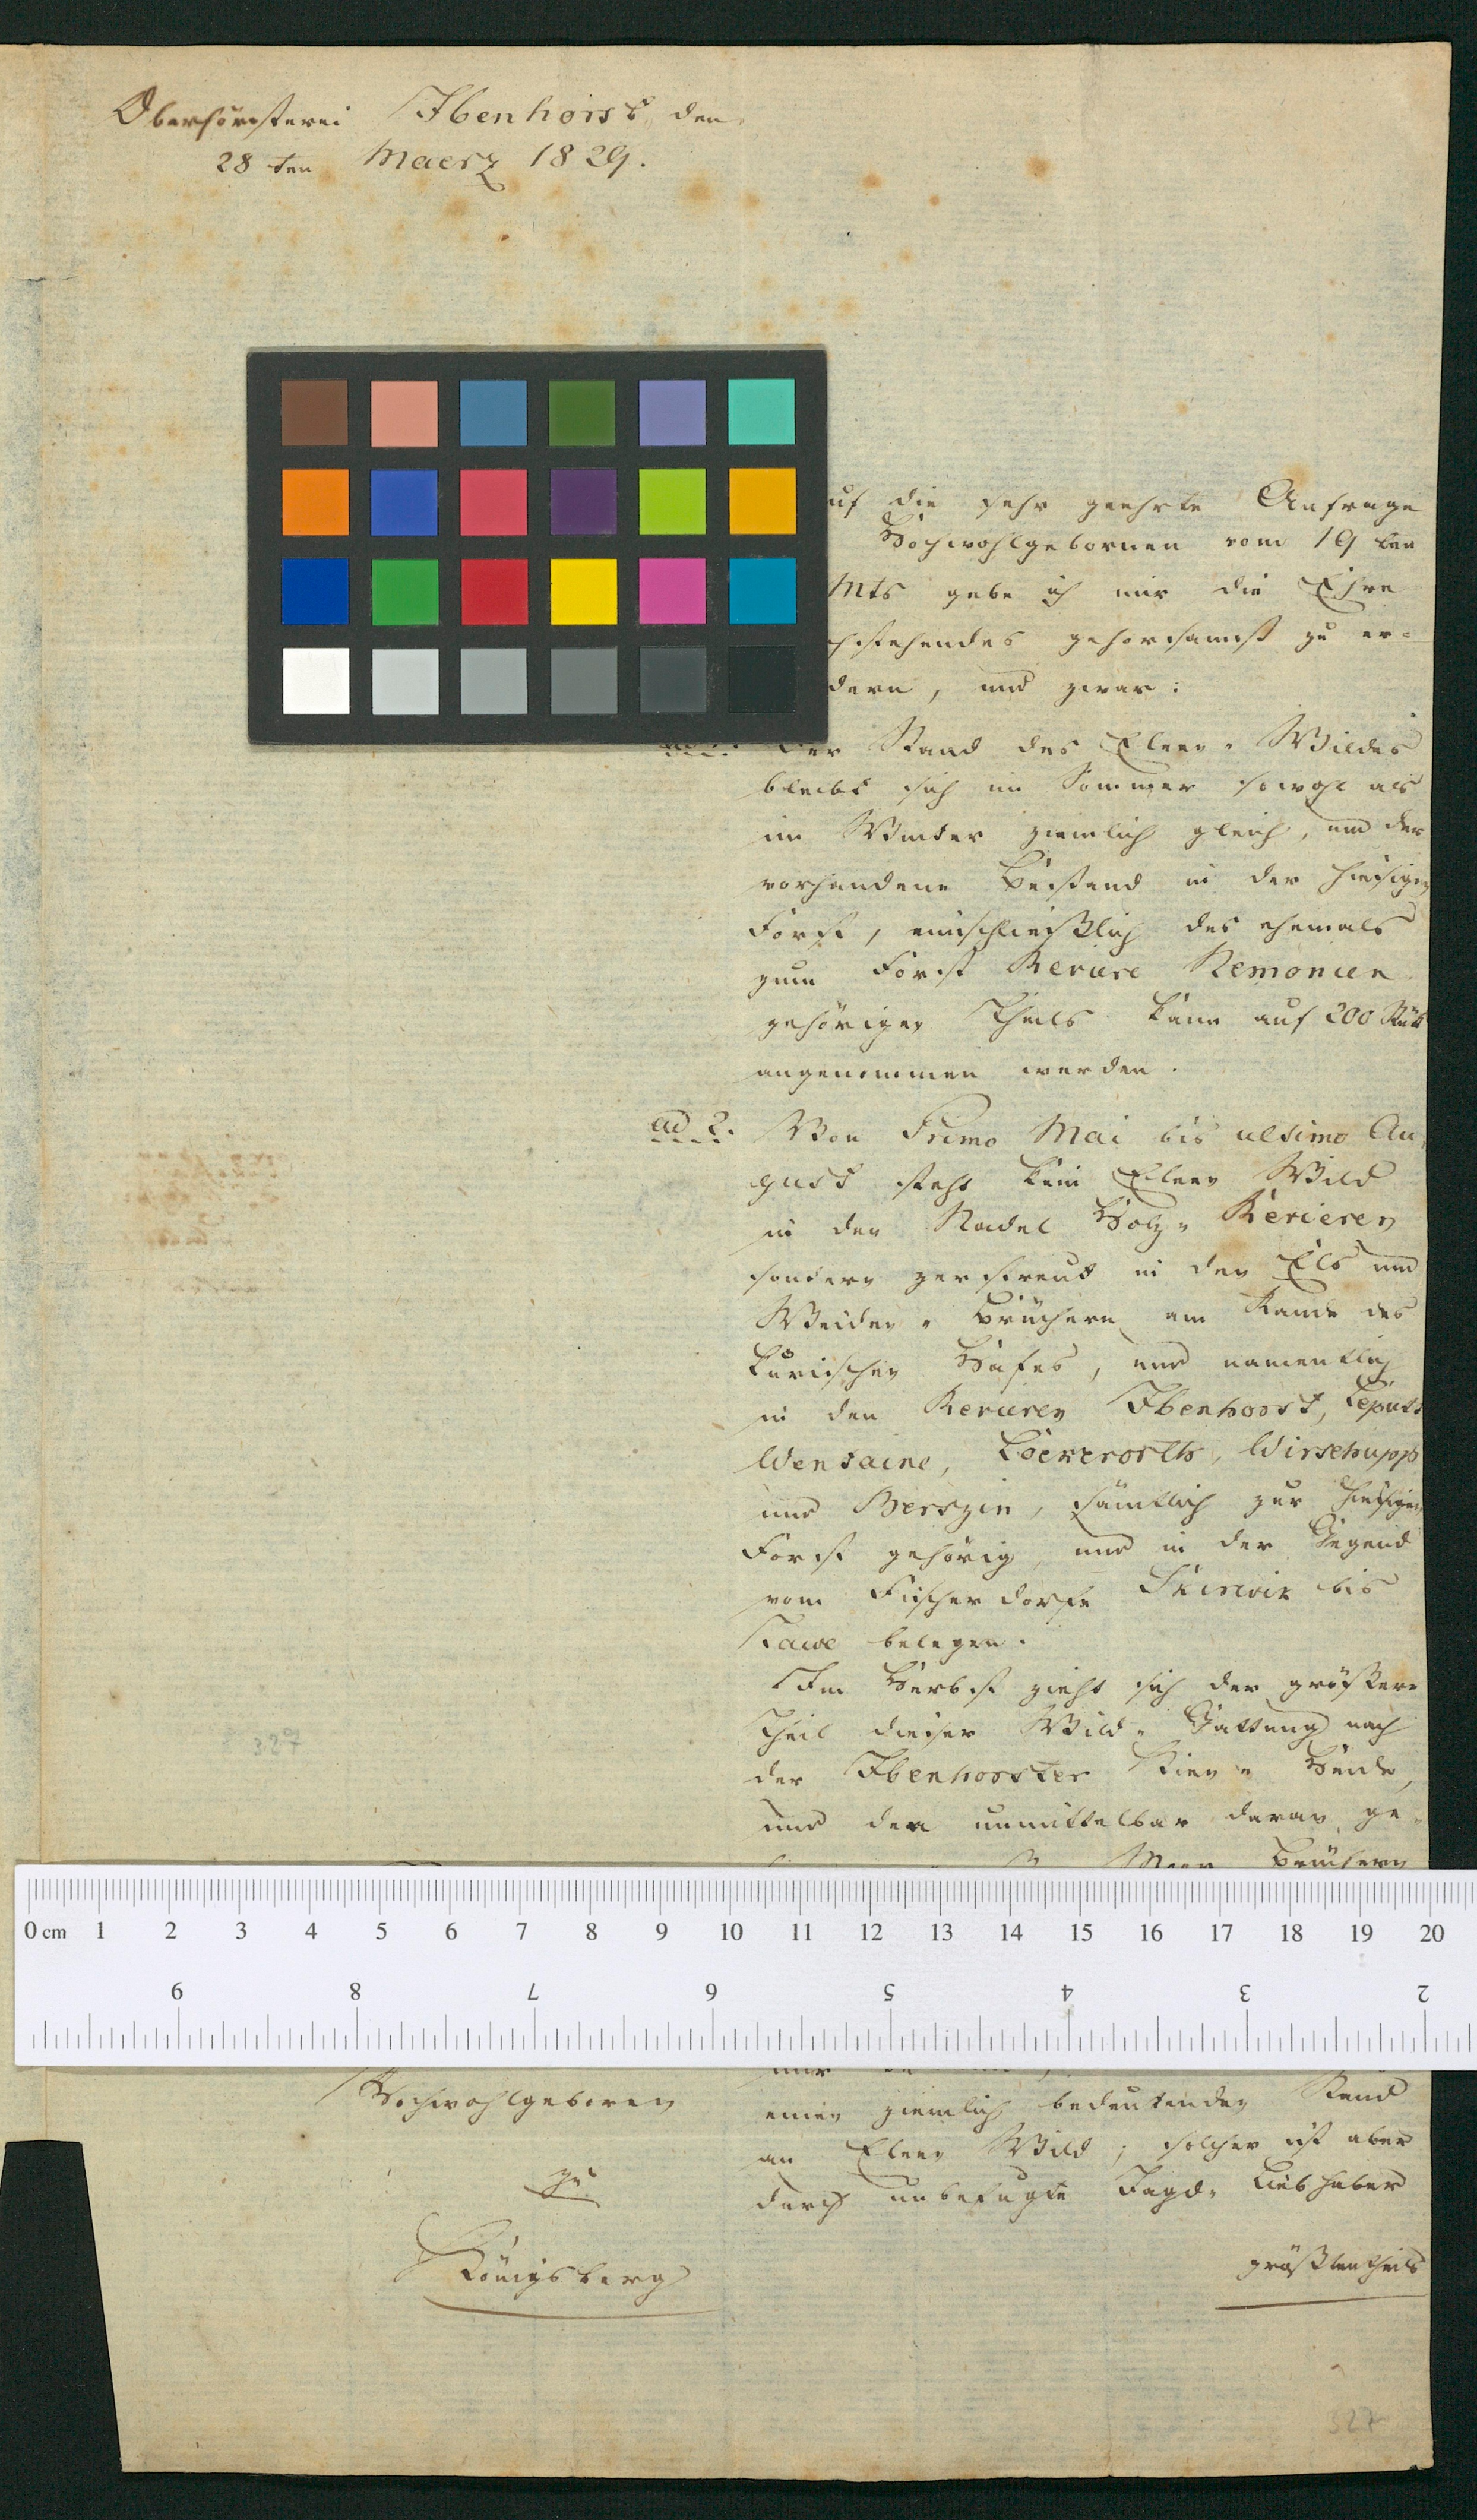 Oberförsterei Ibenhorst den
28 ten Maerz 1829.
uf die sehr geehrte Anfrage
Hochwohlgebornen vom 19 ten
Mts gebe ich mir die Ehre
hstehendes gehorsamst zu er=
dern, und zwar:
Der Stand des Elenn=Wildes
bleibt sich im Sommer sowohl als
im Winter ziemlich gleich, und der
vorhandene Bestand in der hiesigen
Forst, einschließlich des ehemals
zum Forst Reviere Nemonien
gehörigen Theils kann auf 200 Stück
angenommen werden.
ad 2. Von Primo Mai bis ultimo Au=
gust steht kein Elenn Wild
in den Nadel Holz=Revieren
sondern zerstreut in den Els und
Weiden=Brüchern am Rande des
Kurischen Hafes, und namentlich
in den Revieren Ibenhorst,
Wentaine, Loeckerorth, Wirschupp
und Berszin, sämtlich zur hiesigen
Forst gehörig, und in der Gegend
vom Fischerdorfe Skirwik bis
Tawe belegen.
Im Herbst zieht sich der größere
Theil dieser Wild=Gattung nach
der Ibenhorster Kien=Heide,
und den unmittelbar daran ge=
Moor Brüchern
0 cm 1 2 3 4 5 6 7 8 9 10 11 12 13 14 15 16 17 18 19 20
9 8 7 6 5 4 3 2
Hochwohlgeboren
zu
Königsberg
einen ziemlich bedeutenden Stand
an Elenn Wild; solcher ist aber
durch unbefugte Jagd=Liebhaber
größtentheils
327
327